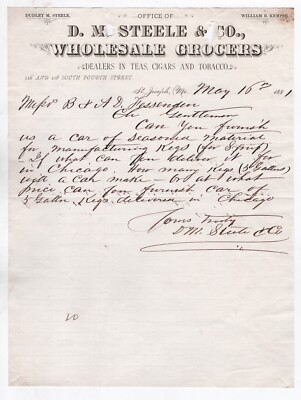 DUDLEY M. STEELE. OFFICE OF WILLIAM B. KEMPER.
D. M. STEELE & CO.,
WHOLESALE GROCERS
DEALERS IN TEAS, CIGARS AND TOBACCO.
SOUTH FOURTH STREET.
St. Joseph, Mo. May 16th 1881
Mess B & A D Fessenden
Gentlemen
Can You furnish
us a car of seasoned material
for manufacturing Kegs (for Syrup)
If what can you deliver it for
in Chicago. How many Kegs (5 Gallon)
will a car make – or at what
price can you furnish car of
5 Gallon Kegs delivered in Chicago
Yours Truly
D M. Steele & Co